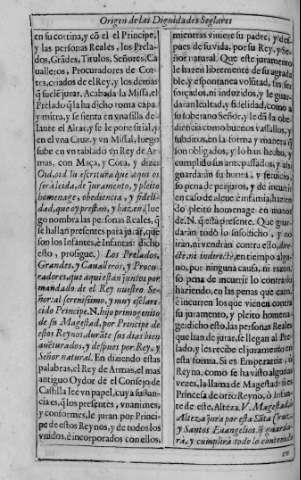 Origen de las Dignidades Seglares
en su cortina, y cō el el Principe,
y las personas Reales, los Prela-
dos, Grādes, Titulos, Señores, Ca
ualleros, Procuradores de Cor-
tes, criados de el Rey, y los demàs
q̃ suelē jurar. Acabada la Missa, el
Prelado q̃ la ha dicho toma capa
y mitra, y se sienta en vna silla de-
lante el Altar, y se le pone sitial, y
en el vna Cruz, y vn Missal, luego
sube en vn tablado vn Rey de Ar
mas, con Maça, y Cota, y dize:
Oyd, oyd la escritura que aqui os
serà leida, de juramento, y pleito
homenage, obediencia, y fideli-
dad, que oy prestan, y hazen (lue
go nombra las personas Reales, q̃
se hallan presentes para jurar, que
son los Infantes, è Infantas: dicho
esto, prosigue.) Los Prelados,
Grandes, y Caualleros, y Procu-
radores, que aqui estàn juntos por
mandado de el Rey nuestro Se-
ñor: al serenissimo, y muy esclare-
cido Principe. N. hijo primogenito
de su Magestad, por Principe de
estos Reynos, durāte sus dias bien
auēturados, y despues por Rey, y
Señor natural. En diziendo estas
palabras, el Rey de Armas, el mas
antiguo Oydor de el Consejo de
Castilla lee vn papel, cuya sustan-
cia es, q̃ los presentes, vnanimes,
y conformes, le juran por Princi-
pe de estos Reynos, y de todos los
vnidos, è incorporados con ellos,
mientras viuiere su padre, y des-
pues de su vida, por su Rey, y Se-
ñor natural. Que este juramento
le hazen libremente de su agrada
ble, y espontanea voluntad, sin
ser forçados, ni induzidos, y le guar-
daràn lealtad, y fidelidad, como à
su soberano Señor, y le dàn la obe-
diencia como buenos vassallos, y
subditos, en la forma y manera q̃
son obligados, y lo han hecho, y
cumplido sus antepassados, y assi
guardaràn su honra, y seruicio,
so pena de perjuros, y de incurrir
en caso de aleue è infamia, hazen
do pleito homenage en manos
de N. q̃ està presente. Que guar-
daràn todo lo susodicho, y no
iràn, ni vendràn contra ello, dire-
cte, ni indirecte, en tiempo algu-
no, por ninguna causa, ni razon,
so pena de incurrir lo contrario
haziendo, en las penas que caen,
è incurren los que vienen contra
su juramento, y pleito homena-
ge: dicho esto, las personas Reales
que han de jurar, se llegan al Pre
lado, y les recibe el juramento en
esta forma. Si es Emperatriz, ò
Reyna, como se ha visto algunas
vezes, la llama de Magestad: si es
Princesa de otro Reyno, ò Infan-
te de este, Alteza, V. Magestad, ò
Alteza jura por esta Santa Cruz,
y Santos Euangelios, q̃ guarda-
rà, y cumplirà todo lo contenido